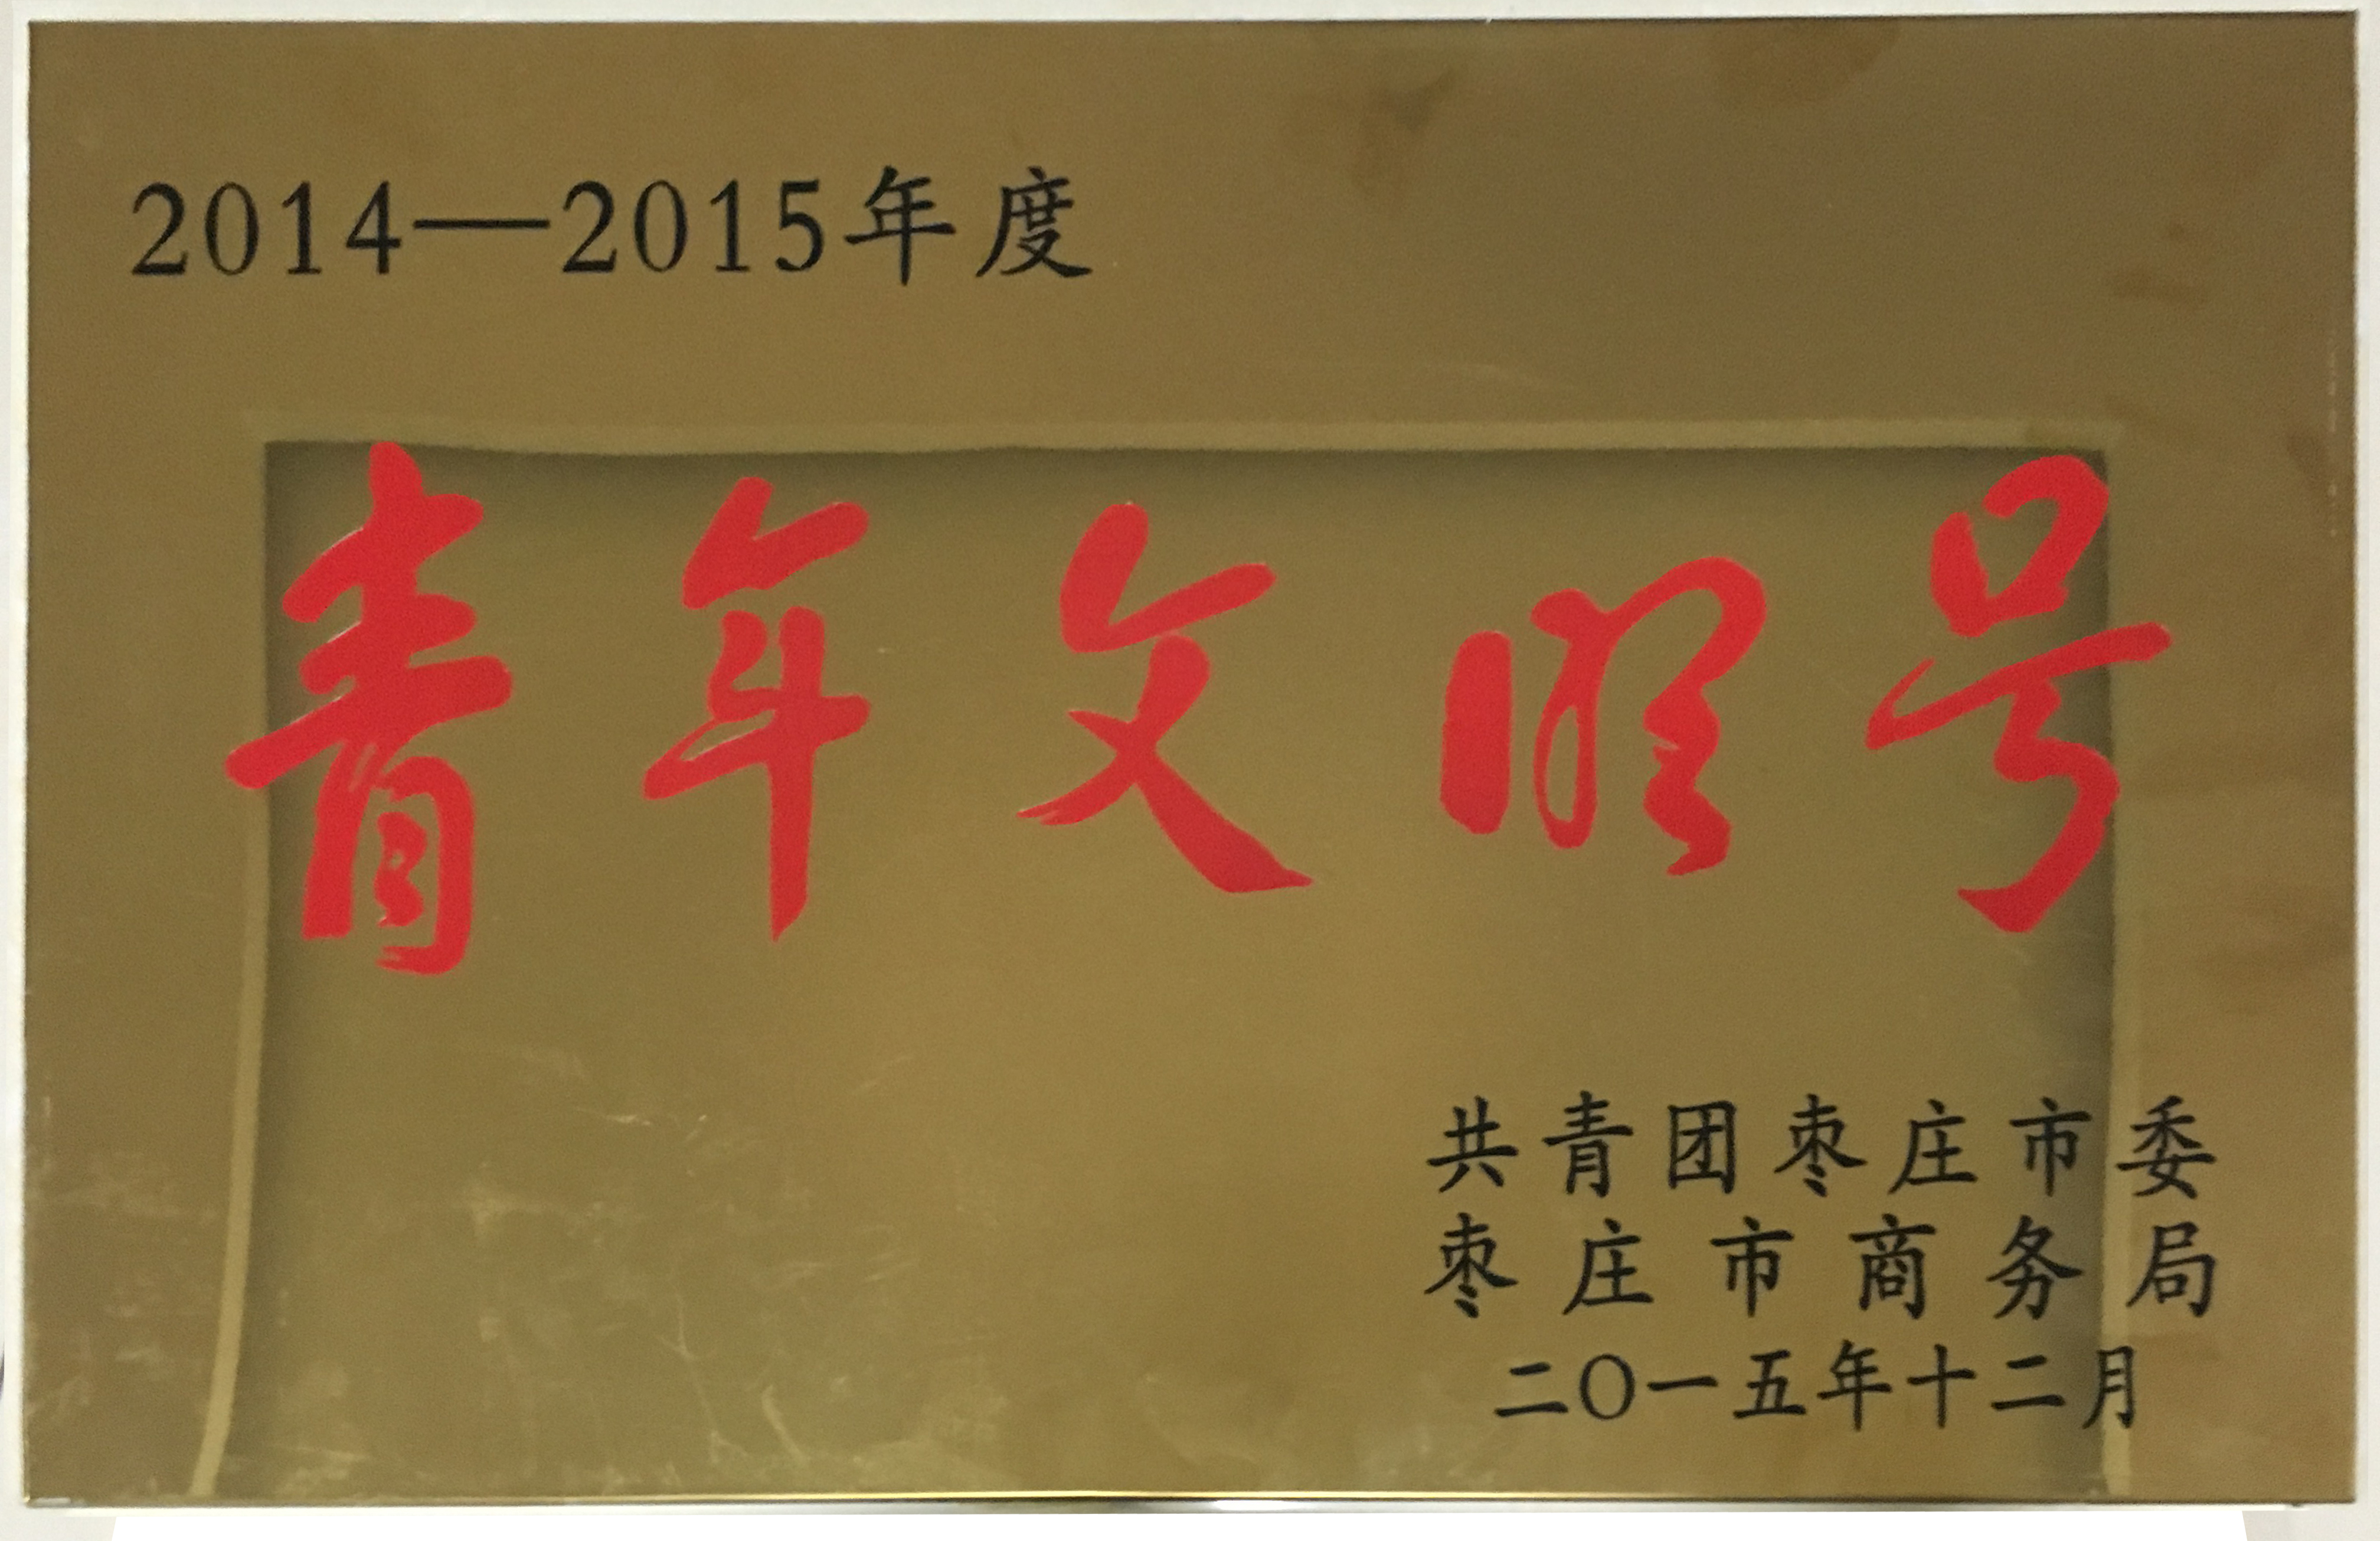 2014—2015年度
青年文明号
共青团枣庄市委
枣庄市商务局
二〇一五年十二月